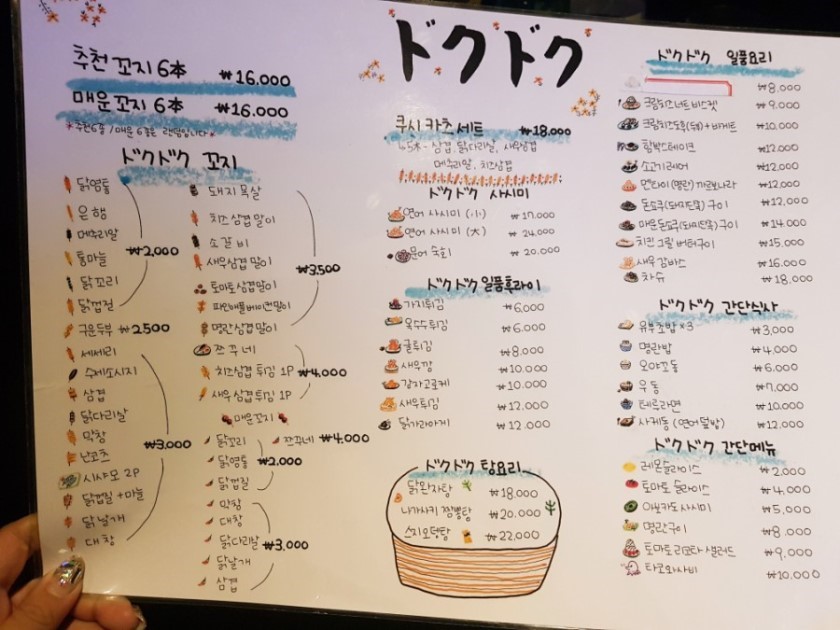 추천 꼬지 6本 ₩16.000
매운꼬지 6本 ₩16.000
*추천6종 / 매운 6종은 랜덤입니다*
ドクドク 꼬지
닭염통
은행
메추리알
통마늘
닭꼬리
닭껍질
₩2,000
구운두부 ₩2500
세세리
수제소시지
삼겹
닭다리살
막창
난코츠
시샤모 2P
닭껍질+마늘
닭날개
대창
₩3,000
돼지목살
치즈삼겹말이
소갈비
새우삼겹말이
토마토삼겹말이
파인애플베이컨말이
명란삼겹말이
₩3,500
쯔꾸네
치즈삼겹 튀김 1P
새우삼겹튀김 1P
₩4,000
매운꼬지
닭꼬리
닭염통
닭껍질
₩2,000
쯔꾸네 ₩4,000
막창
대창
닭다리살
닭날개
삼겹
₩3,000
ドクドク
쿠시카츠세트 ₩18,000
5本 - 삼겹, 닭다리살, 새우삼겹
메추리알, 치즈삼겹
ドクドク 사시미
연어 사시미 (小) ₩17.000
연어 사시미 (大) ₩24.000
문어 숙회 ₩20.000
ドクドク일품후라이
가지튀김 ₩6,000
옥수수튀김 ₩6.000
굴튀김 ₩8.000
새우깡 ₩10.000
감자고로케 ₩10.000
새우튀김 ₩12,000
닭가라아게 ₩12.000
ドクドク 탕요리
닭완자탕 ₩18,000
나가사키 짬뽕탕 ₩20.000
스지오뎅탕 ₩22,000
ドクドク 일품요리
₩8,000
크림치즈너트비스켓 ₩9,000
크림치즈두부(두부)+바게트 ₩10,000
함박스테이크 ₩12,000
소고기레어 ₩12,000
멘타이(명란)까르보나라 ₩12,000
돈토쿠(돼지턱살)구이 ₩12,000
매운돈토쿠(돼지턱살)구이 ₩14.000
치킨그릴버터구이 ₩15.000
새우감바스 ₩16.000
차슈 ₩18,000
ドクドク 간단식사
유부초밥*3 ₩3,000
명란밥 ₩4,000
오야꼬동 ₩6.000
우동 ₩7,000
테루라면 ₩10.000
사케동 (연어덮밥) ₩12,000
ドクドク 간단메뉴
레몬슬라이스 ₩2.000
토마토 슬라이스 ₩4,000
아보카도사시미 ₩5,000
명란구이 ₩8.000
토마토리코타 샐러드 ₩9,000
타코와사비 ₩10,000